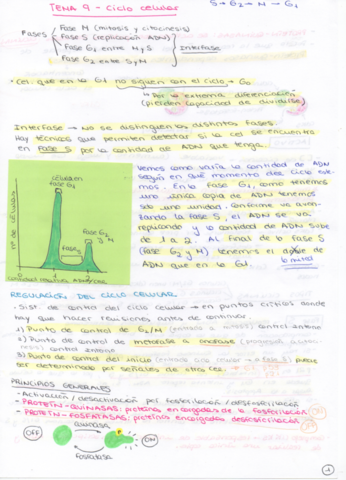 TEMA 9 - Ciclo celular
S → G2 → M → G1
Fases
Fase M (mitosis y citocinesis)
Fase S (replicación ADN)
Fase G1 entre M y S
Fase G2 entre S y M
Interfase
• Cel. que en la G1 no siguen con el ciclo → G0
↳ Por la extrema diferenciación
(pierden capacidad de dividirse)
Interfase → No se distinguen las distintas fases.
Hay técnicas que permiten detectar si la cel se encuentra
en Fase S por la cantidad de ADN que tenga.
Vemos como varía la cantidad de ADN
según en qué momento del ciclo
mos. En la Fase G1, como tenemos
una única copia de ADN tenemos
solo una unidad. Conforme va avan-
zando la Fase S, el ADN se va
replicando y la cantidad de ADN sube
de 1 a 2. Al final de la Fase S
(Fase G2 y M) tenemos el doble de
ADN que en la G1.
la mitad
nº de células
células en
fase G1
Fase S
Fase G2
y M
0 1 2
cantidad relativa ADN/célula
REGULACIÓN DEL CICLO CELULAR
- Sist de control del ciclo celular → en puntos críticos donde
hay que hacer revisiones antes de continuar.
1) Punto de control de G2/M (entrada a mitosis) control interno
2) Punto de control de metafase a anafase
control interno
3) Punto de control del inicio
ser determinado por señales de otras cel.
PRINCIPIOS GENERALES
- Activación / desactivación por fosforilación / desfosforilación
- PROTEÍN-QUINASAS: proteína encargadas de la fosforilación
ON
- PROTEÍN-FOSFATASAS: proteína encargadas desfosforilación
OFF
quinasa
P
ON
fosfatasa
1